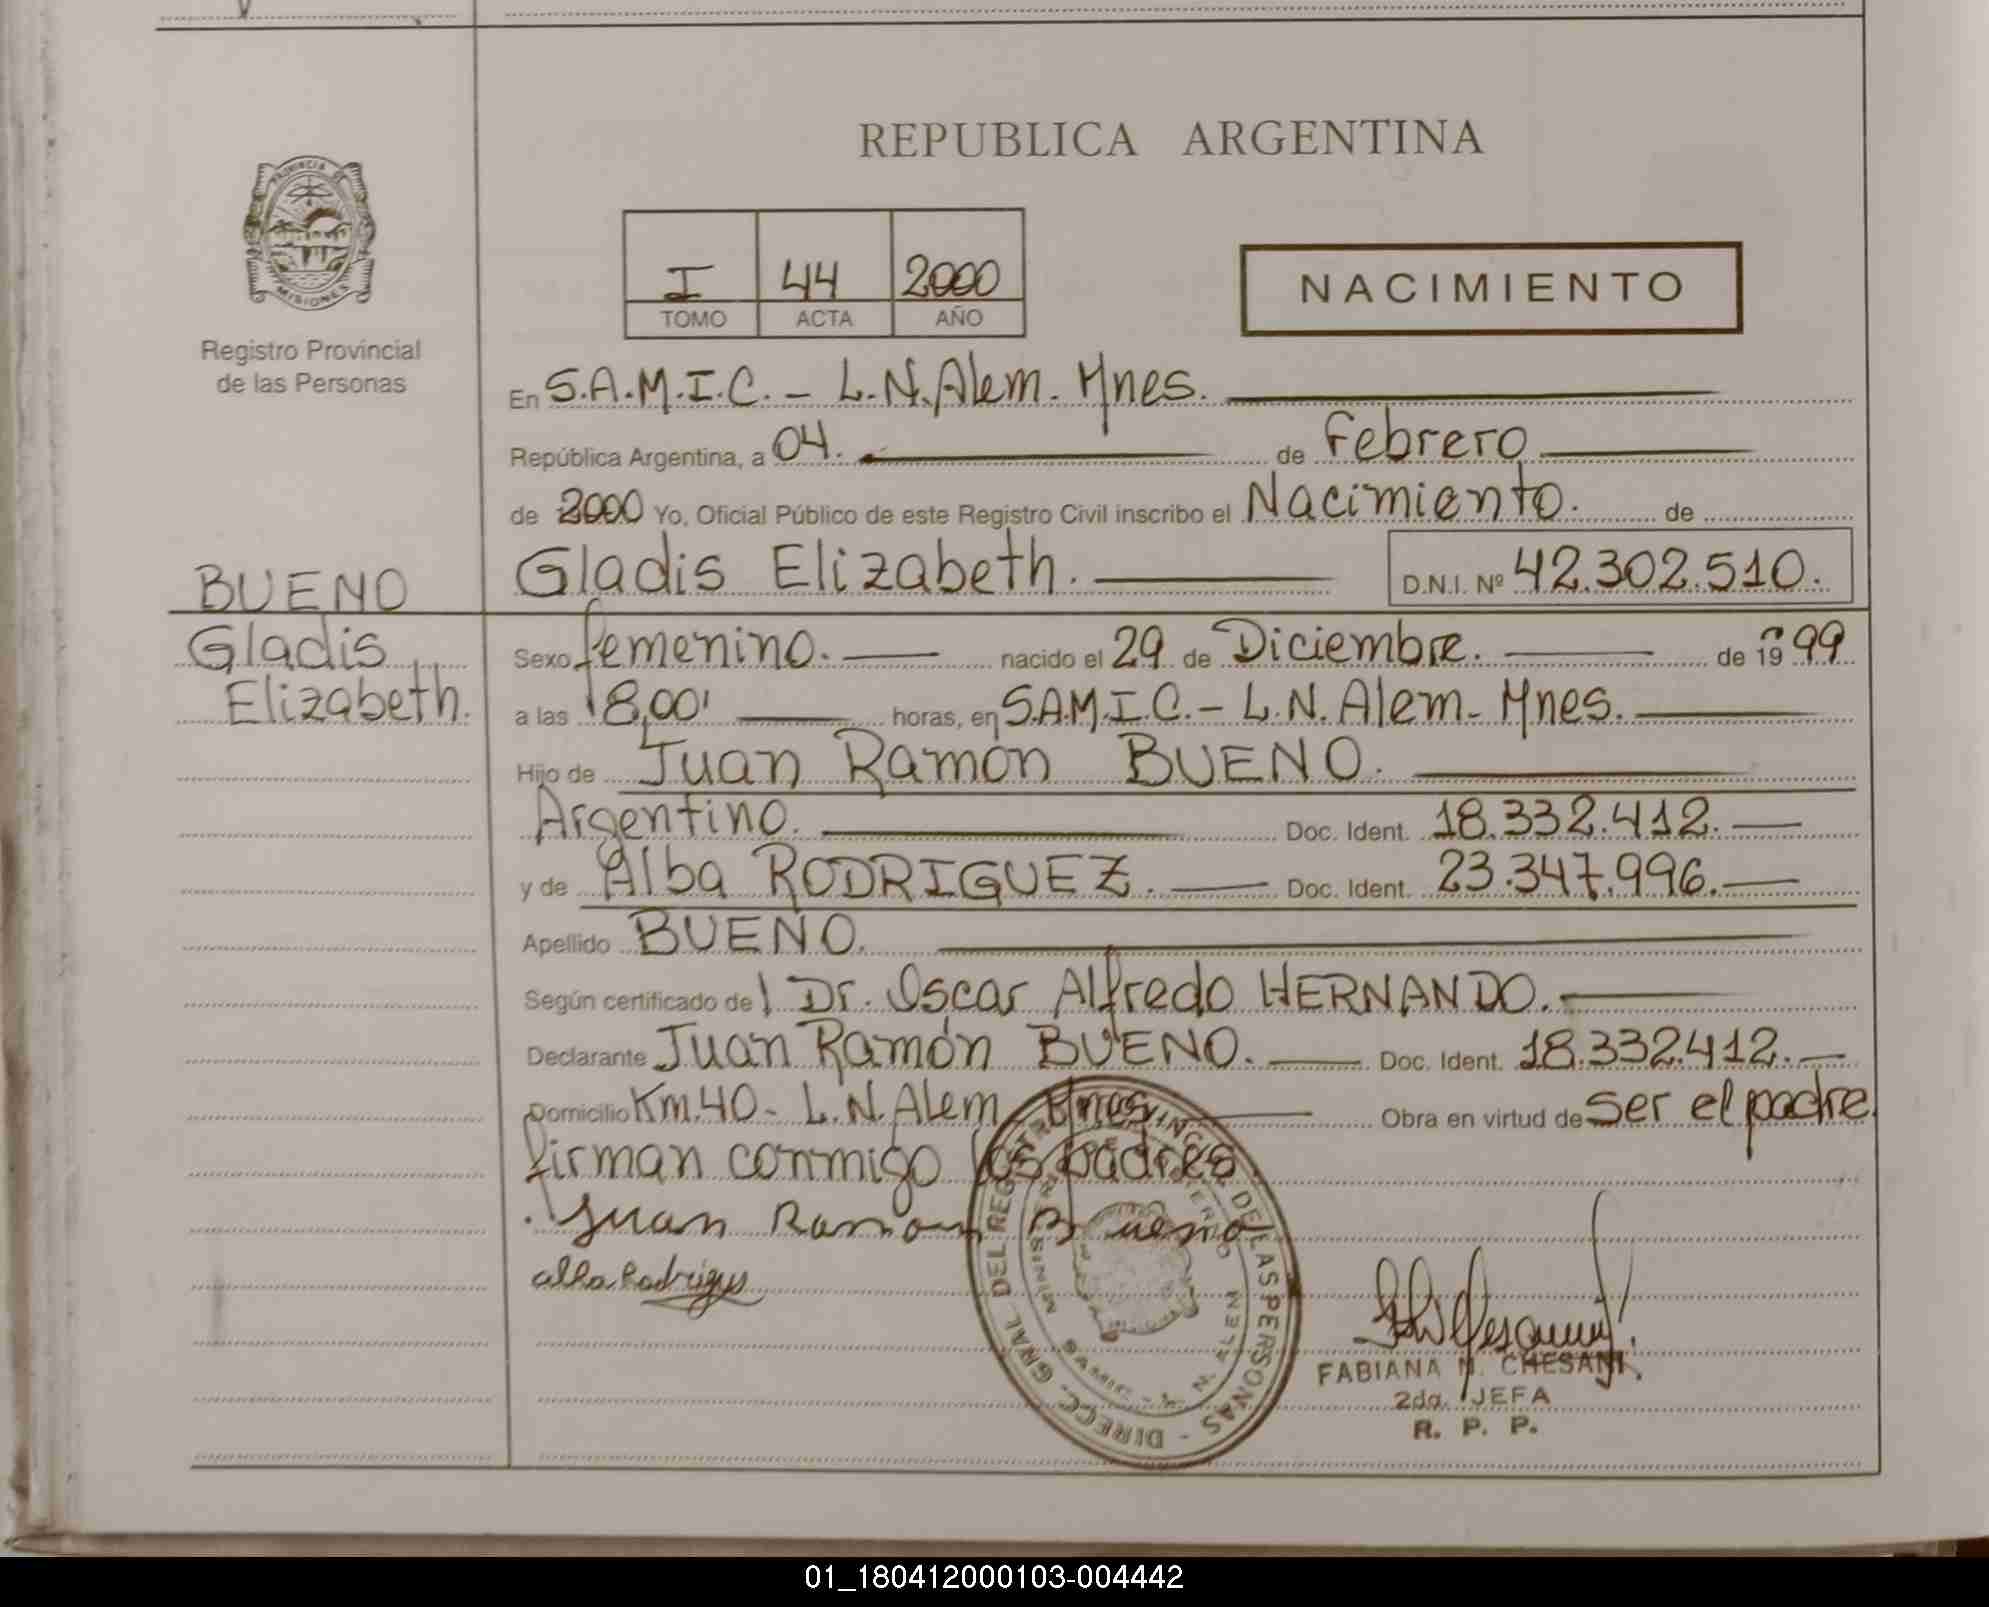 REPUBLICA ARGENTINA
PROVINCIA DE
MISIONES
Registro Provincial
de las Personas
I 44 2000
TOMO ACTA AÑO
NACIMIENTO
En S.A.M.I.C. - L.N.Alem. Mnes.
República Argentina, a 04. de Febrero
de 2000 Yo, Oficial Público de este Registro Civil inscribo el Nacimiento. de
Gladis Elizabeth. D.N.I. Nº 42.302.510.
BUENO
Gladis
Elizabeth.
Sexo femenino. nacido el 29 de Diciembre. de 19 99
a las 18,00' horas, en S.A.M.I.C. - L.N. Alem. Mnes.
Hijo de Juan Ramón BUENO.
Argentino. Doc. Ident. 18.332.412.
y de Alba RODRIGUEZ. Doc. Ident. 23.347.996.
Apellido BUENO.
Según certificado de l Dr. Oscar Alfredo HERNANDO.
Declarante Juan Ramón BUENO. Doc. Ident. 18.332.412.
Domicilio Km.40- L.N.Alem Mnes. Obra en virtud de ser el padre.
firman conmigo los padres.
Juan Ramon Bueno
alba Rodrigus
DIRECC. GRAL DEL REGISTRO PROVINCIAL DE LAS PERSONAS
SAMIC - L. N. ALEM
FABIANA N. CHESANI
2da. JEFA
R. P. P.
01_180412000103-004442